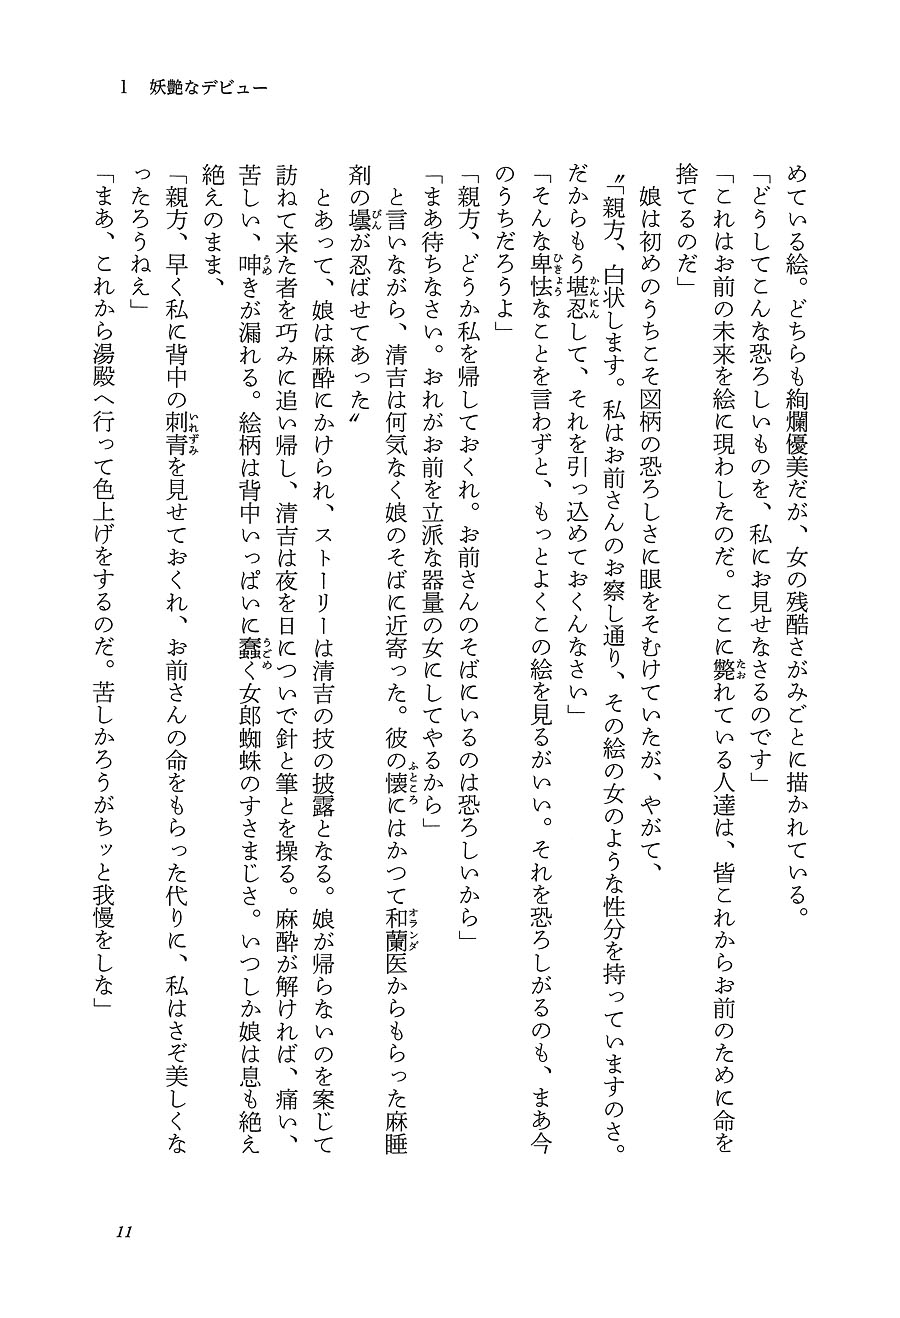 1　妖艶なデビュー
めている絵。どちらも絢爛優美だが、女の残酷さがみごとに描かれている。
「どうしてこんな恐ろしいものを、私にお見せなさるのです」
「これはお前の未来を絵に現わしたのだ。ここに斃れている人達は、皆これからお前のために命を
捨てるのだ」
　娘は初めのうちこそ図柄の恐ろしさに眼をそむけていたが、やがて、
〝「親方、白状します。私はお前さんのお察し通り、その絵の女のような性分を持っていますのさ。
だからもう堪忍して、それを引っ込めておくんなさい」
「そんな卑怯なことを言わずと、もっとよくこの絵を見るがいい。それを恐ろしがるのも、まあ今
のうちだろうよ」
「親方、どうか私を帰しておくれ。お前さんのそばにいるのは恐ろしいから」
「まあ待ちなさい。おれがお前を立派な器量の女にしてやるから」
　と言いながら、清吉は何気なく娘のそばに近寄った。彼の懐にはかつて和蘭医からもらった麻睡
剤の壜が忍ばせてあった〟
　とあって、娘は麻酔にかけられ、ストーリーは清吉の技の披露となる。娘が帰らないのを案じて
訪ねて来た者を巧みに追い帰し、清吉は夜を日についで針と筆とを操る。麻酔が解ければ、痛い、
苦しい、呻きが漏れる。絵柄は背中いっぱいに蠢く女郎蜘蛛のすさまじさ。いつしか娘は息も絶え
絶えのまま、
「親方、早く私に背中の刺青を見せておくれ、お前さんの命をもらった代りに、私はさぞ美しくな
ったろうねえ」
「まあ、これから湯殿へ行って色上げをするのだ。苦しかろうがちッと我慢をしな」
11